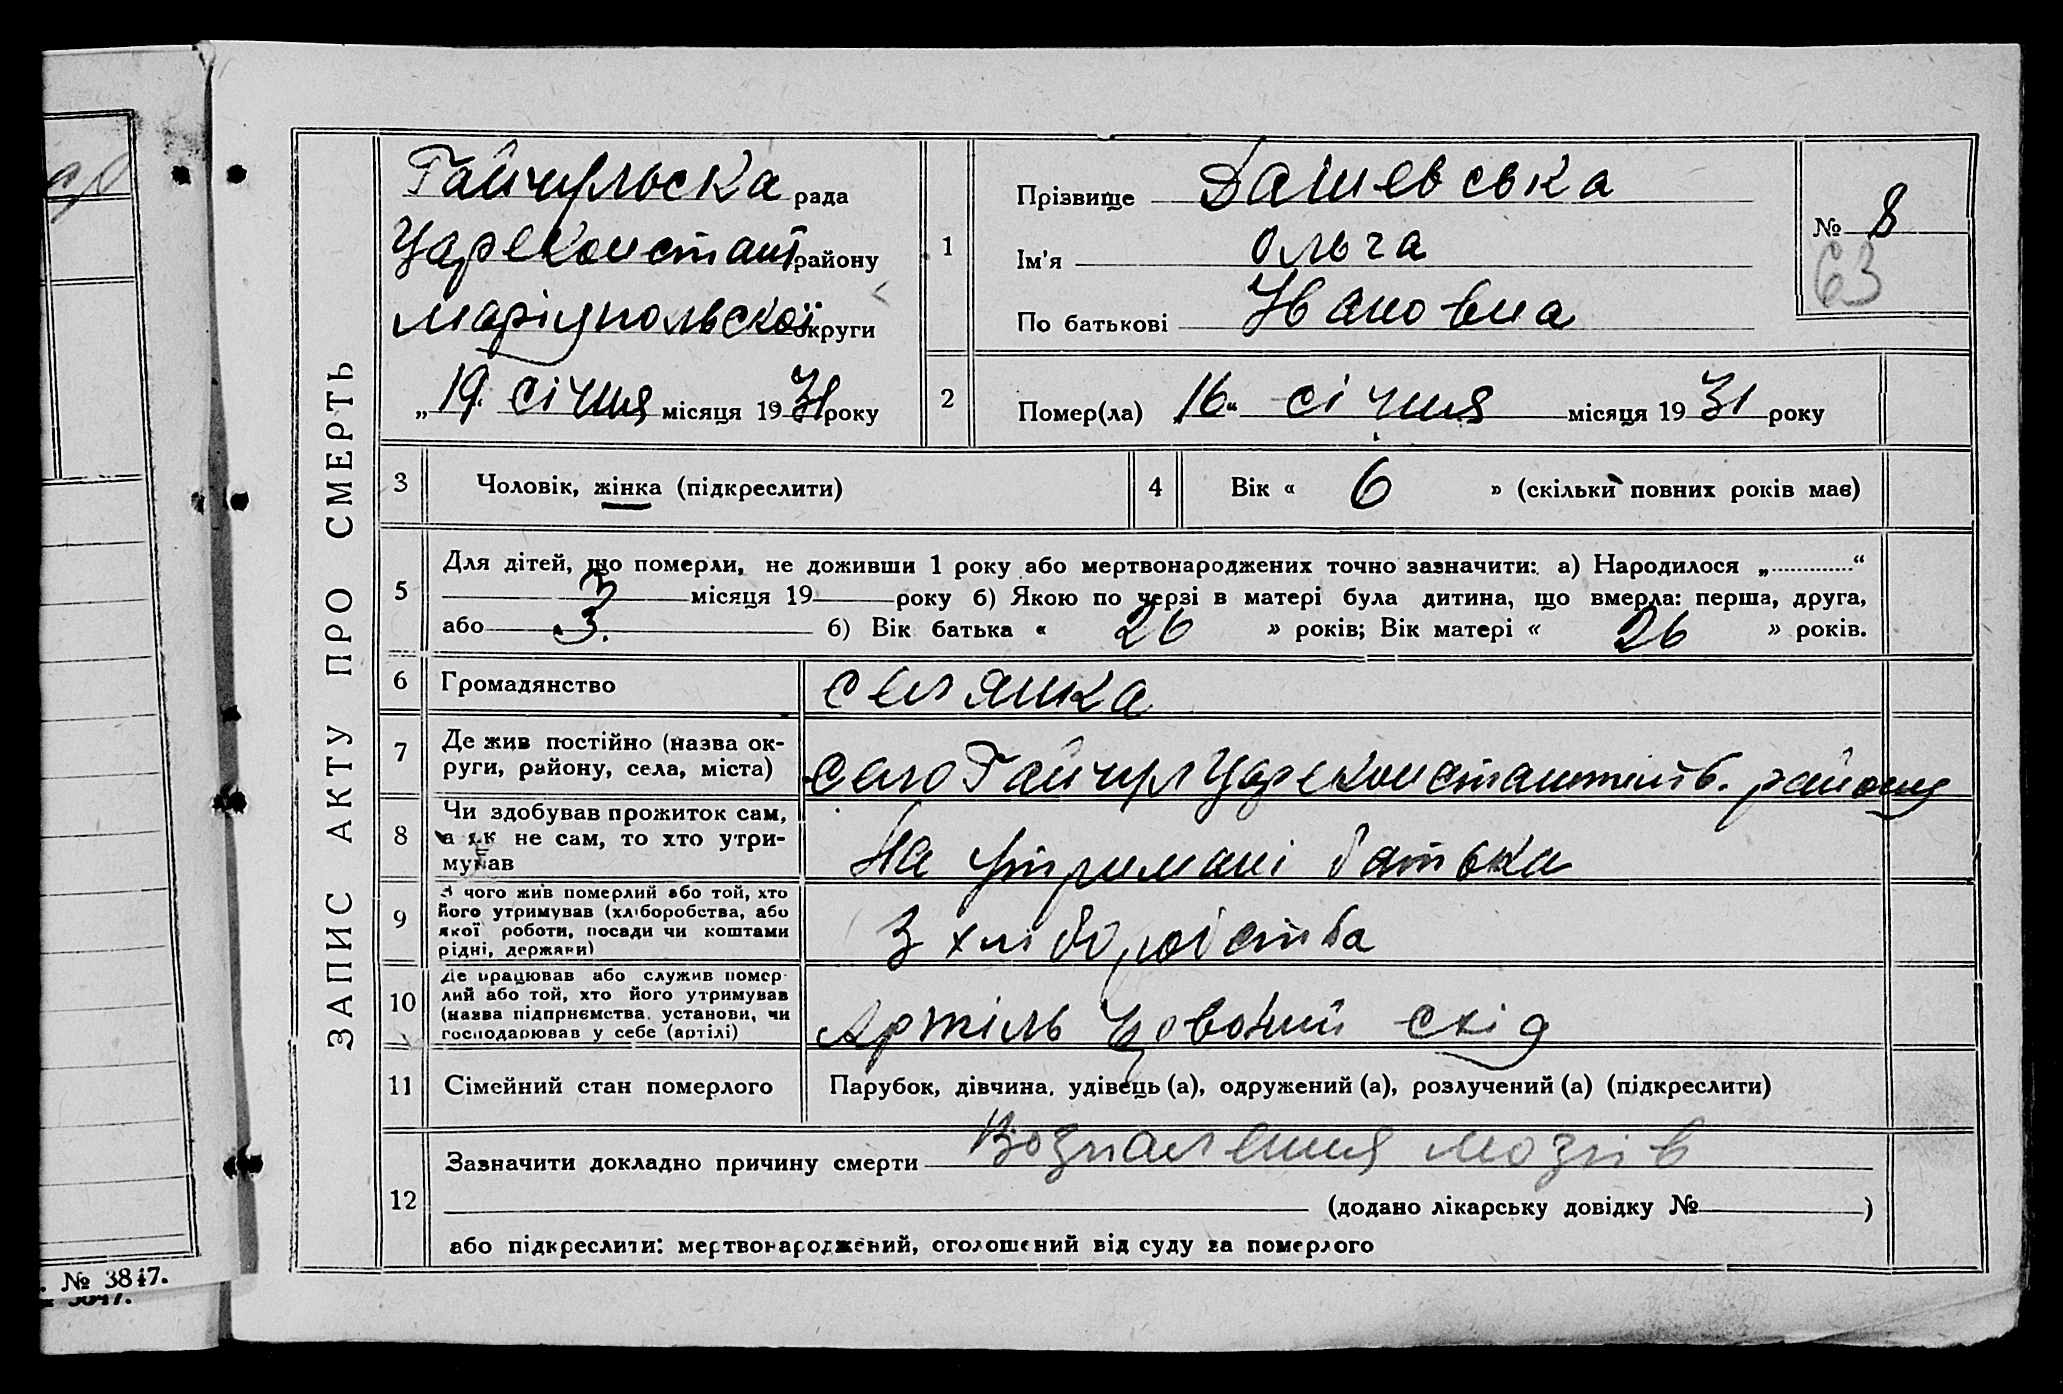 ЗАПИС АКТУ ПРО СМЕРТЬ
Гайчульска рада
Царекомстант району
Маріупольскої округи
„19. січня місяця 1931 року
1
Прізвище Дашевська
Ім'я Ольга
По батькові Ивановна
№ 8
63
2
Помер(ла) 16 " січня місяця 1931 року
3 Чоловік, жінка (підкреслити)
4 Вік « 6 » (скільки повних років має)
5 Для дітей, що померли, не доживши 1 року або мертвонароджених точно зазначити: а) Народилося „............“
місяця 19 року б) Якою по черзі в матері була дитина, що вмерла: перша, друга,
або 3. б) Вік батька « 26 » років; Вік матері « 26 » років.
6 Громадянство селянка
7 Де жив постійно (назва ок-
руги, району, села, міста) село Гайчул Царекомстантинів. району
8 Чи здобував прожиток сам,
а як не сам, то хто утри-
мував На утримані батька
9 З чого жив померлий або той, хто
його утримував (хліборобства, або
якої роботи, посади чи коштами
рідні, держави) З хліборобства
10 Де працював або служив помер-
лий або той, хто його утримував
(назва підприємства, установи, чи
господарював у себе (артілі) Артіль Червоний схід
11 Сімейний стан померлого Парубок, дівчина, удівець (а), одружений (а), розлучений (а) (підкреслити)
12 Зазначити докладно причину смерти Возпаления мозгів
(додано лікарську довідку № )
або підкреслити: мертвонароджений, оголошений від суду за померлого
№ 3847.
3847.